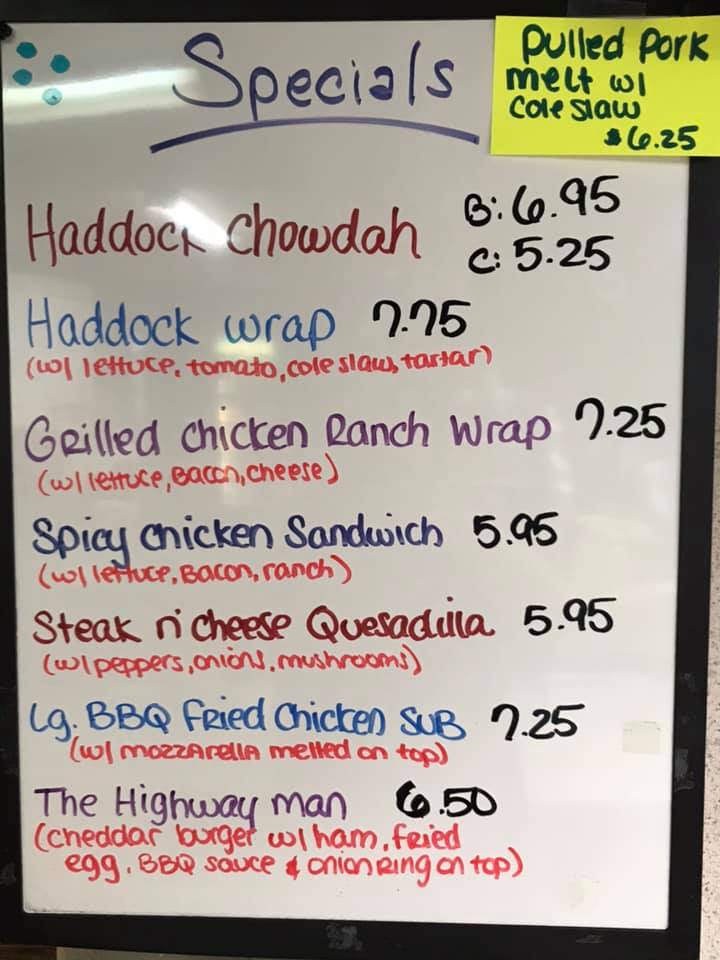 Specials
Pulled Pork
melt w/
cole slaw
$6.25
Haddock Chowdah
B: 6.95
C: 5.25
Haddock wrap 7.75
(w/ lettuce, tomato, cole slaw, tartar)
Grilled Chicken Ranch Wrap 7.25
(w/ lettuce, Bacon, cheese)
Spicy Chicken Sandwich 5.95
(w/ lettuce, Bacon, ranch)
Steak n' cheese Quesadilla 5.95
(w/ peppers, onions, mushrooms)
Lg. BBQ Fried Chicken SUB 7.25
(w/ mozzarella melted on top)
The Highway man 6.50
(cheddar burger w/ ham, fried
egg, BBQ sauce & onion ring on top)